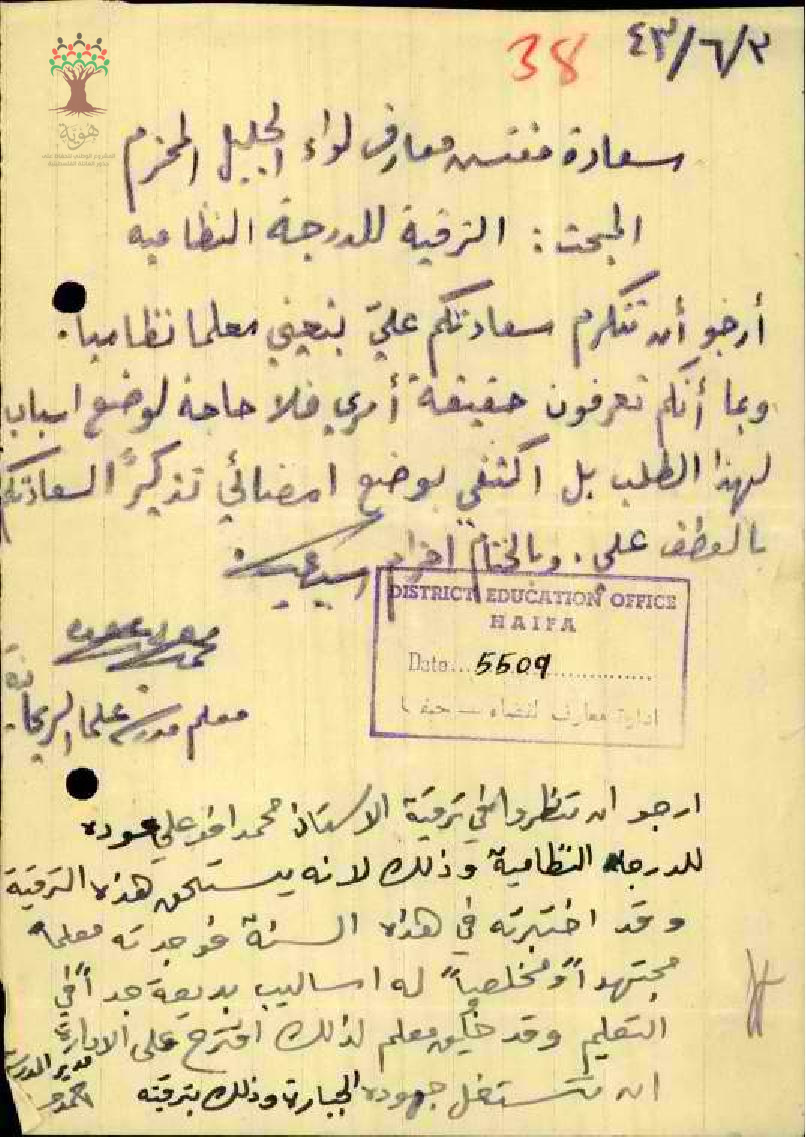 ٤٣/٦/٣
38
هوية
سعادة مفتش معارف لواء الجليل المحترم
المبحث : الترقية للدرجة النظامية
أرجو أن تتكرم سعادتكم عليّ بتعييني معلما نظاميا .
وبما أنكم تعرفون حقيقة أمري فلا حاجة لوضع اسباب
لهذا الطلب بل اكتفي بوضع امضائي تذكيرًا لسعادتكم
بالعطف علي . وبالختام
DISTRICT EDUCATION OFFICE
HAIFA
Date...5509
ادارة معارف لقضاء - حيفا
معلم مدرسة علما الريحانية
ارجو ان تنظروا في ترقية الاستاذ محمد افندي علي عوده
للدرجه النظامية وذلك لانه يستحق هذه الترقية
وقد اختبرته في هذه السنة فوجدته معلما
مجتهداً ومخلصاً له اساليب بديعة جداً في
التعليم وقد خلق معلم لذلك اقترح على الادارة
ان تستغل جهوده الجبارة وذلك بترقيته
مدير المدرسة